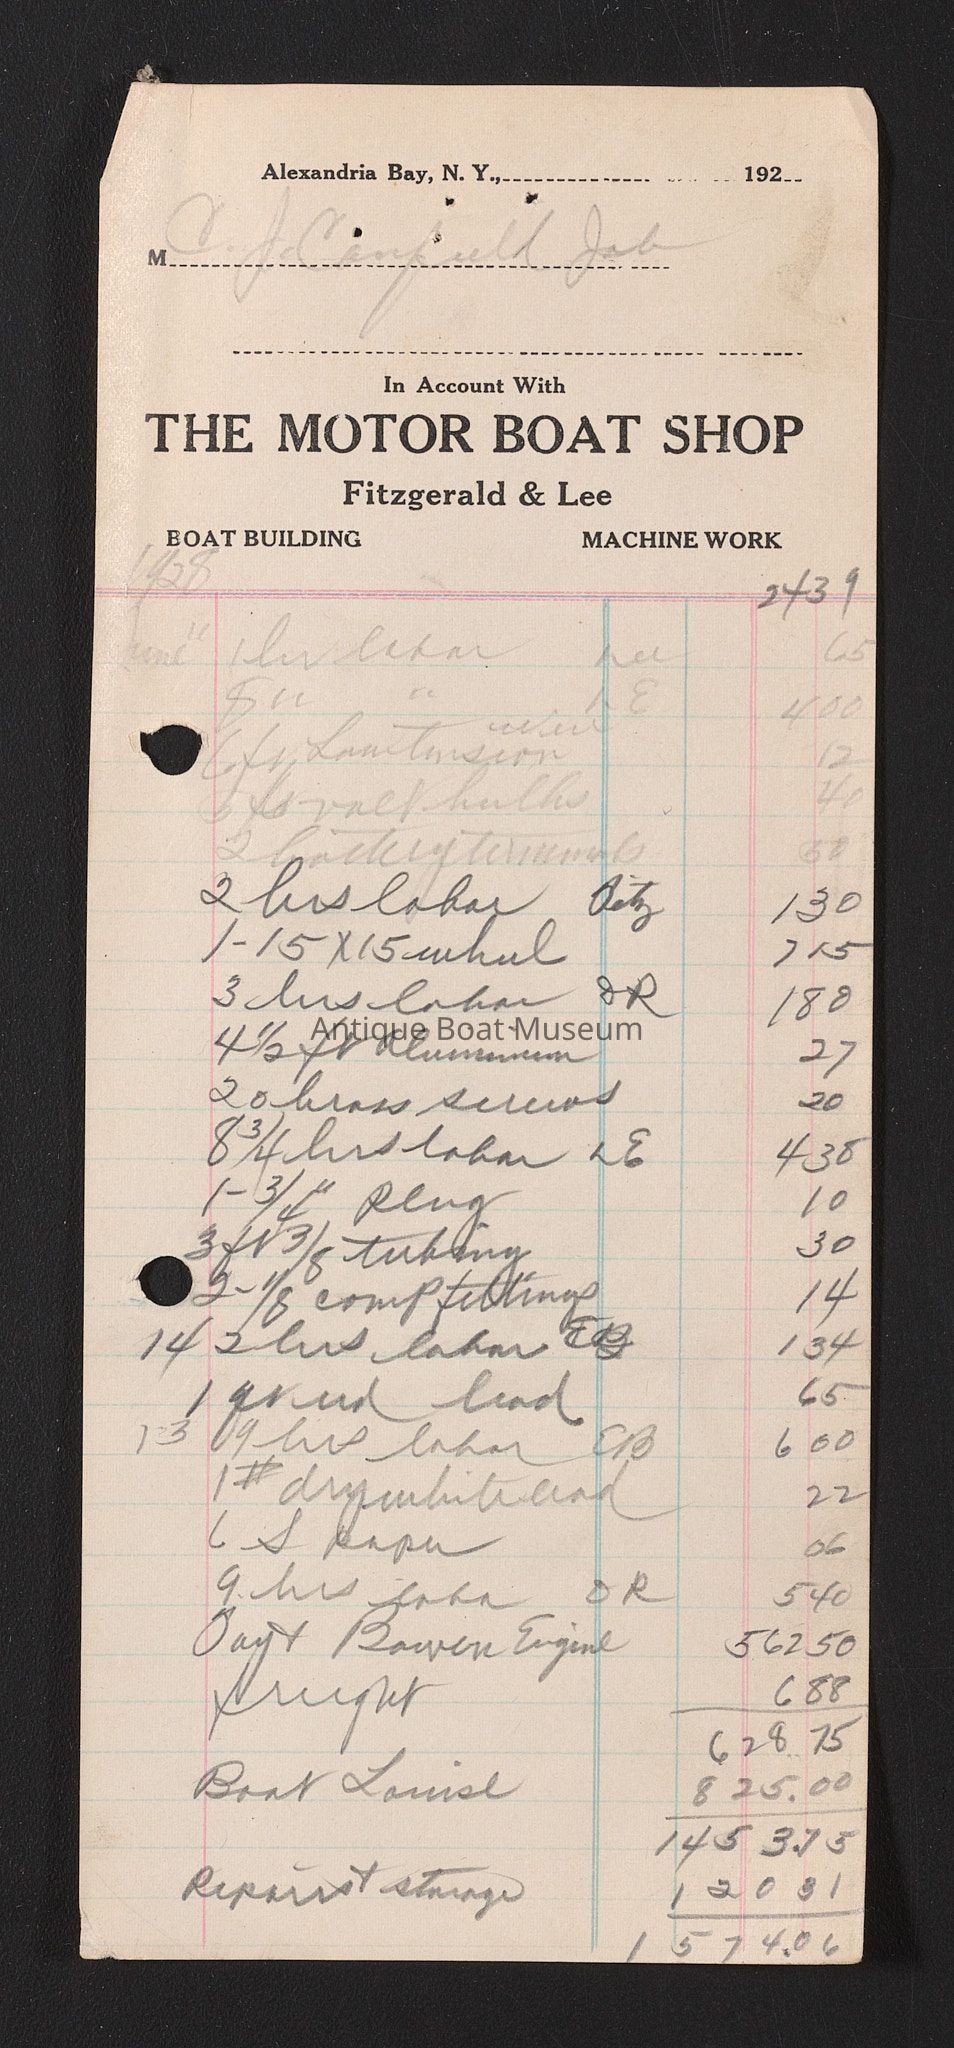 Alexandria Bay, N. Y., 192
M C. J. Canfield Job
In Account With
THE MOTOR BOAT SHOP
Fitzgerald & Lee
BOAT BUILDING MACHINE WORK
1928
2439
June " 1 hr labor Lee 65
8 " " LE 400
6 ft Low tension wire 12
6 volt bulbs 40
2 battery terminals
2 hrs labor Fitz 130
1-15 X 15 wheel 715
3 hrs labor DR 180
4 1/2 ft Aluminum 27
Antique Boat Museum
20 brass screws 20
8 3/4 hrs labor LE 438
1-3/4" plug 10
3 ft 3/8 tubing 30
2-1/8 comp fittings 14
14 2 hrs labor EB 134
1 qt red lead 65
13 9 hrs labor EB 600
1# dry white lead 22
6 S paper 06
9 hrs labor DR 540
Engine 56250
Freight 688
628 75
Boat Louise 825.00
1453.75
Repairs & storage 12031
1574.06